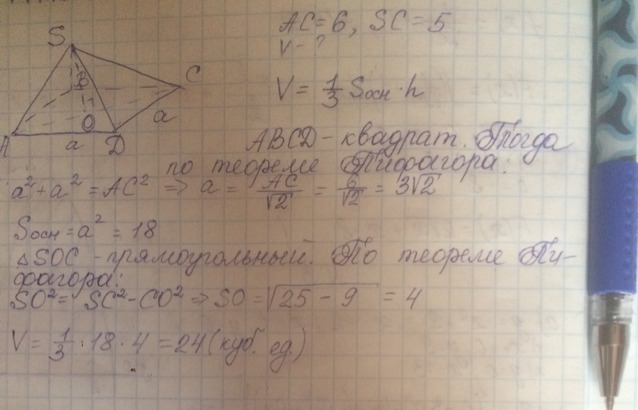 AC = 6, SC = 5
V - ?
S
B
C
A
O
D
a
a
V = 1/3 Sосн · h
ABCD - квадрат. Тогда
по теореме Пифагора:
a² + a² = AC² ⇒ a = AC/√2 = 6/√2 = 3√2
Sосн = a² = 18
△SOC - прямоугольный. По теореме Пи-
фагора:
SO² = SC² - CO² ⇒ SO = √25 - 9 = 4
V = 1/3 · 18 · 4 = 24 (куб. ед.)